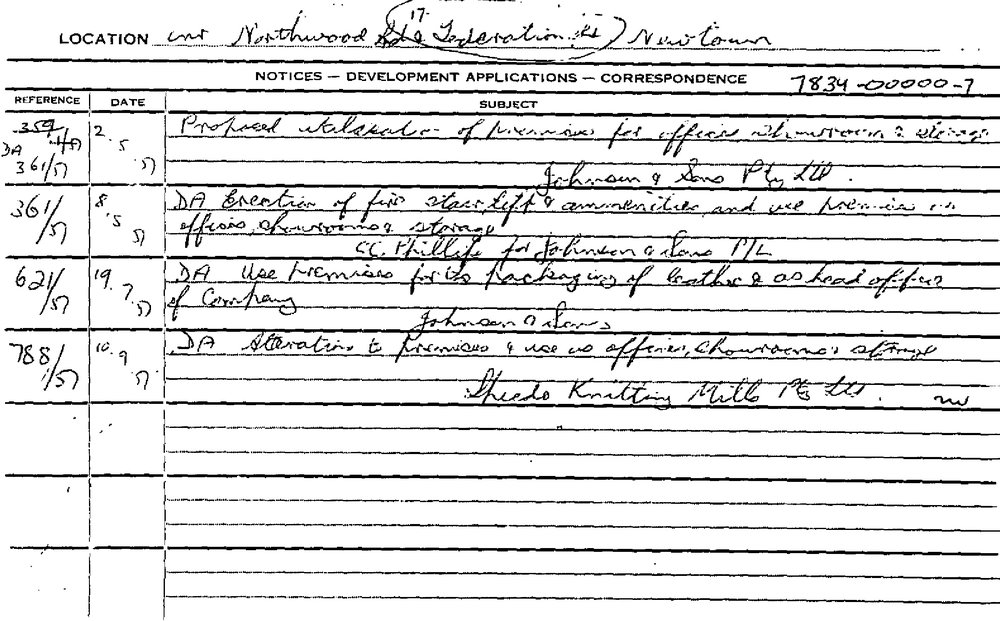 17.
LOCATION cnr Northwood Sts & Federation Rd Newtown
NOTICES — DEVELOPMENT APPLICATIONS — CORRESPONDENCE 7834-00000-7
REFERENCE DATE SUBJECT
359/57 2.5.57 Proposed utilisation of premises for offices showroom & storage
DA 361/57 Johnson & Sons Pty Ltd.
361/57 8.5.57 DA Erection of fire stair, lift & ammenities, and use premises as
offices, showrooms & storage
CC. Phillips for Johnson & Sons P/L
621/57 19.7.57 DA Use premises for packaging of leather & as head office
of Company
Johnson & Sons
788/57 10.9.57 DA Alteration to premises & use as offices, showrooms & storage
Speedo Knitting Mills Pty Ltd.